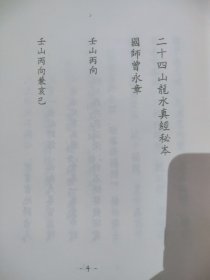 二十四山龍水真經秘本
國師曾永章
壬山丙向
壬山丙向兼亥己
- 4 -